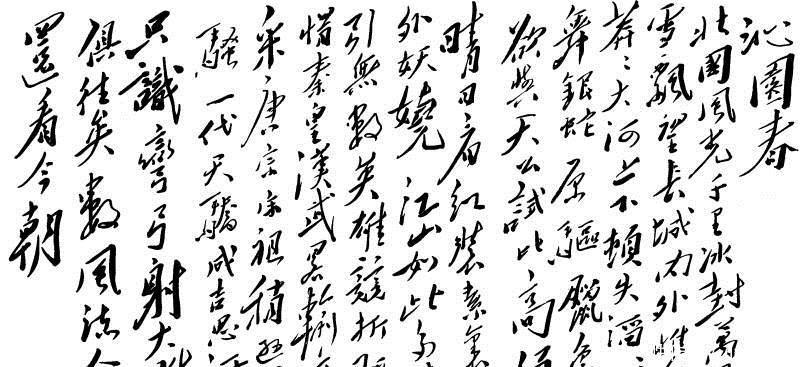 沁園春
北國風光千里冰封萬
雪飄望長城内外惟
莽〻大河上下頓失滔
舞銀蛇原驅臘象
欲與天公試比高須
晴日看紅裝素裹
外妖嬈江山如此多
引無數英雄競折
惜秦皇漢武略輸文
采唐宗宋祖稍遜
騷一代天驕成吉思汗
只識彎弓射大雕
俱往矣數風流人
還看今朝